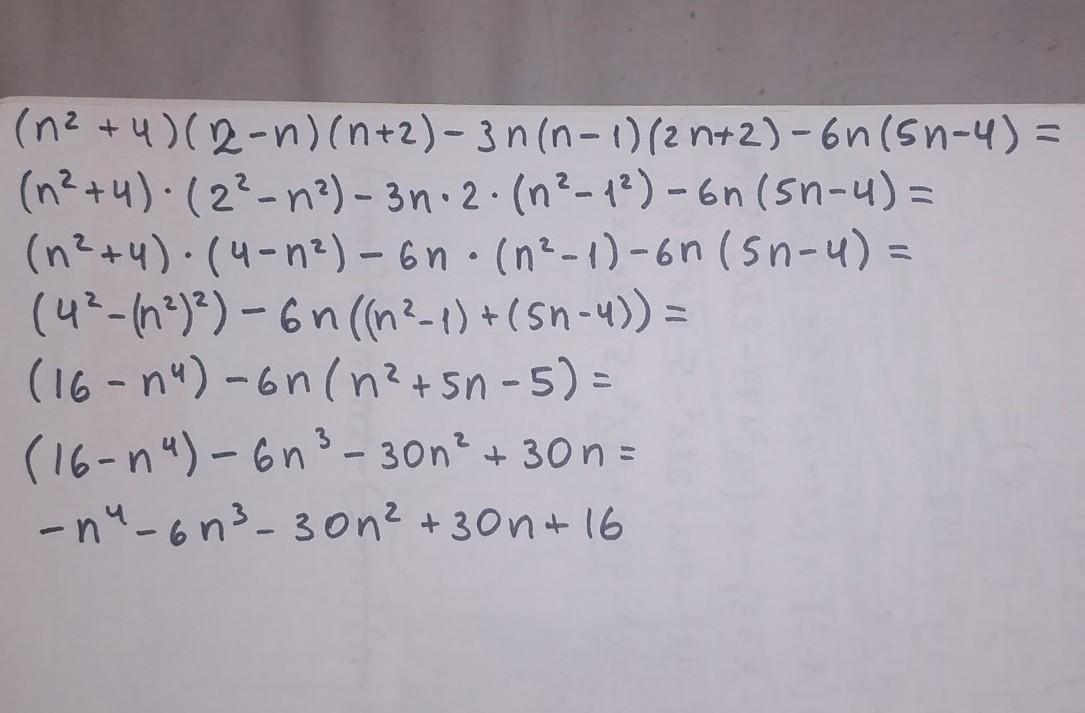 (n² + 4)(2 - n)(n+2) - 3n(n - 1)(2n+2) - 6n(5n-4) =
(n² + 4) · (2² - n²) - 3n · 2 · (n² - 1²) - 6n(5n-4) =
(n² + 4) · (4 - n²) - 6n · (n² - 1) - 6n(5n-4) =
(4² - (n²)²) - 6n((n² - 1) + (5n-4)) =
(16 - n⁴) - 6n(n² + 5n - 5) =
(16 - n⁴) - 6n³ - 30n² + 30n =
- n⁴ - 6n³ - 30n² + 30n + 16